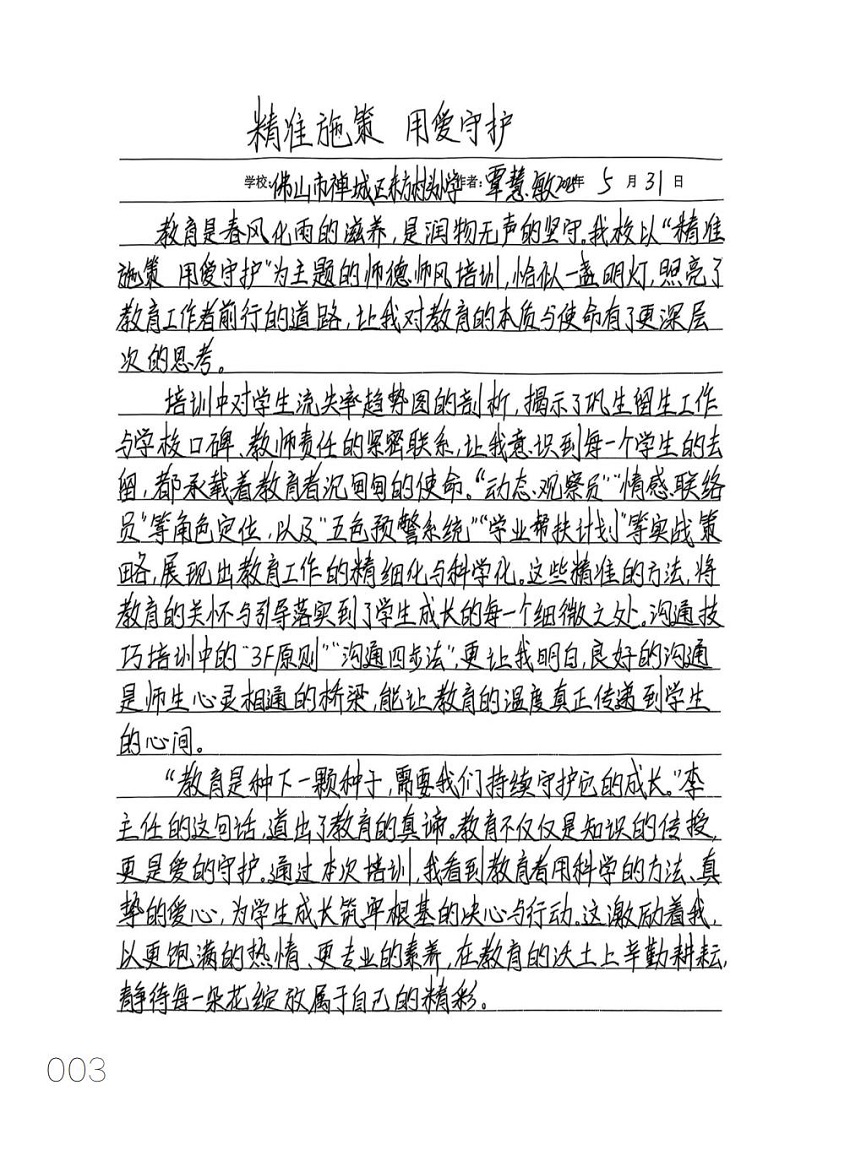 精准施策 用爱守护
学校:佛山市禅城区东方村头小学 作者:覃慧敏 2025年 5 月 31 日
教育是春风化雨的滋养,是润物无声的坚守。我校以“精准
施策 用爱守护”为主题的师德师风培训,恰似一盏明灯,照亮了
教育工作者前行的道路,让我对教育的本质与使命有了更深层
次的思考。
培训中对学生流失率趋势图的剖析,揭示了巩生留生工作
与学校口碑、教师责任的紧密联系,让我意识到每一个学生的去
留,都承载着教育者沉甸甸的使命。“动态观察员”“情感联络
员”等角色定位,以及“五色预警系统”“学业帮扶计划”等实战策
略,展现出教育工作的精细化与科学化。这些精准的方法,将
教育的关怀与引导落实到了学生成长的每一个细微之处。沟通技
巧培训中的“3F原则”“沟通四步法”,更让我明白,良好的沟通
是师生心灵相通的桥梁,能让教育的温度真正传递到学生
的心间。
“教育是种下一颗种子,需要我们持续守护它的成长。”李
主任的这句话,道出了教育的真谛。教育不仅仅是知识的传授,
更是爱的守护。通过本次培训,我看到教育者用科学的方法、真
挚的爱心,为学生成长筑牢根基的决心与行动。这激励着我,
以更饱满的热情、更专业的素养,在教育的沃土上辛勤耕耘,
静待每一朵花绽放属于自己的精彩。
003